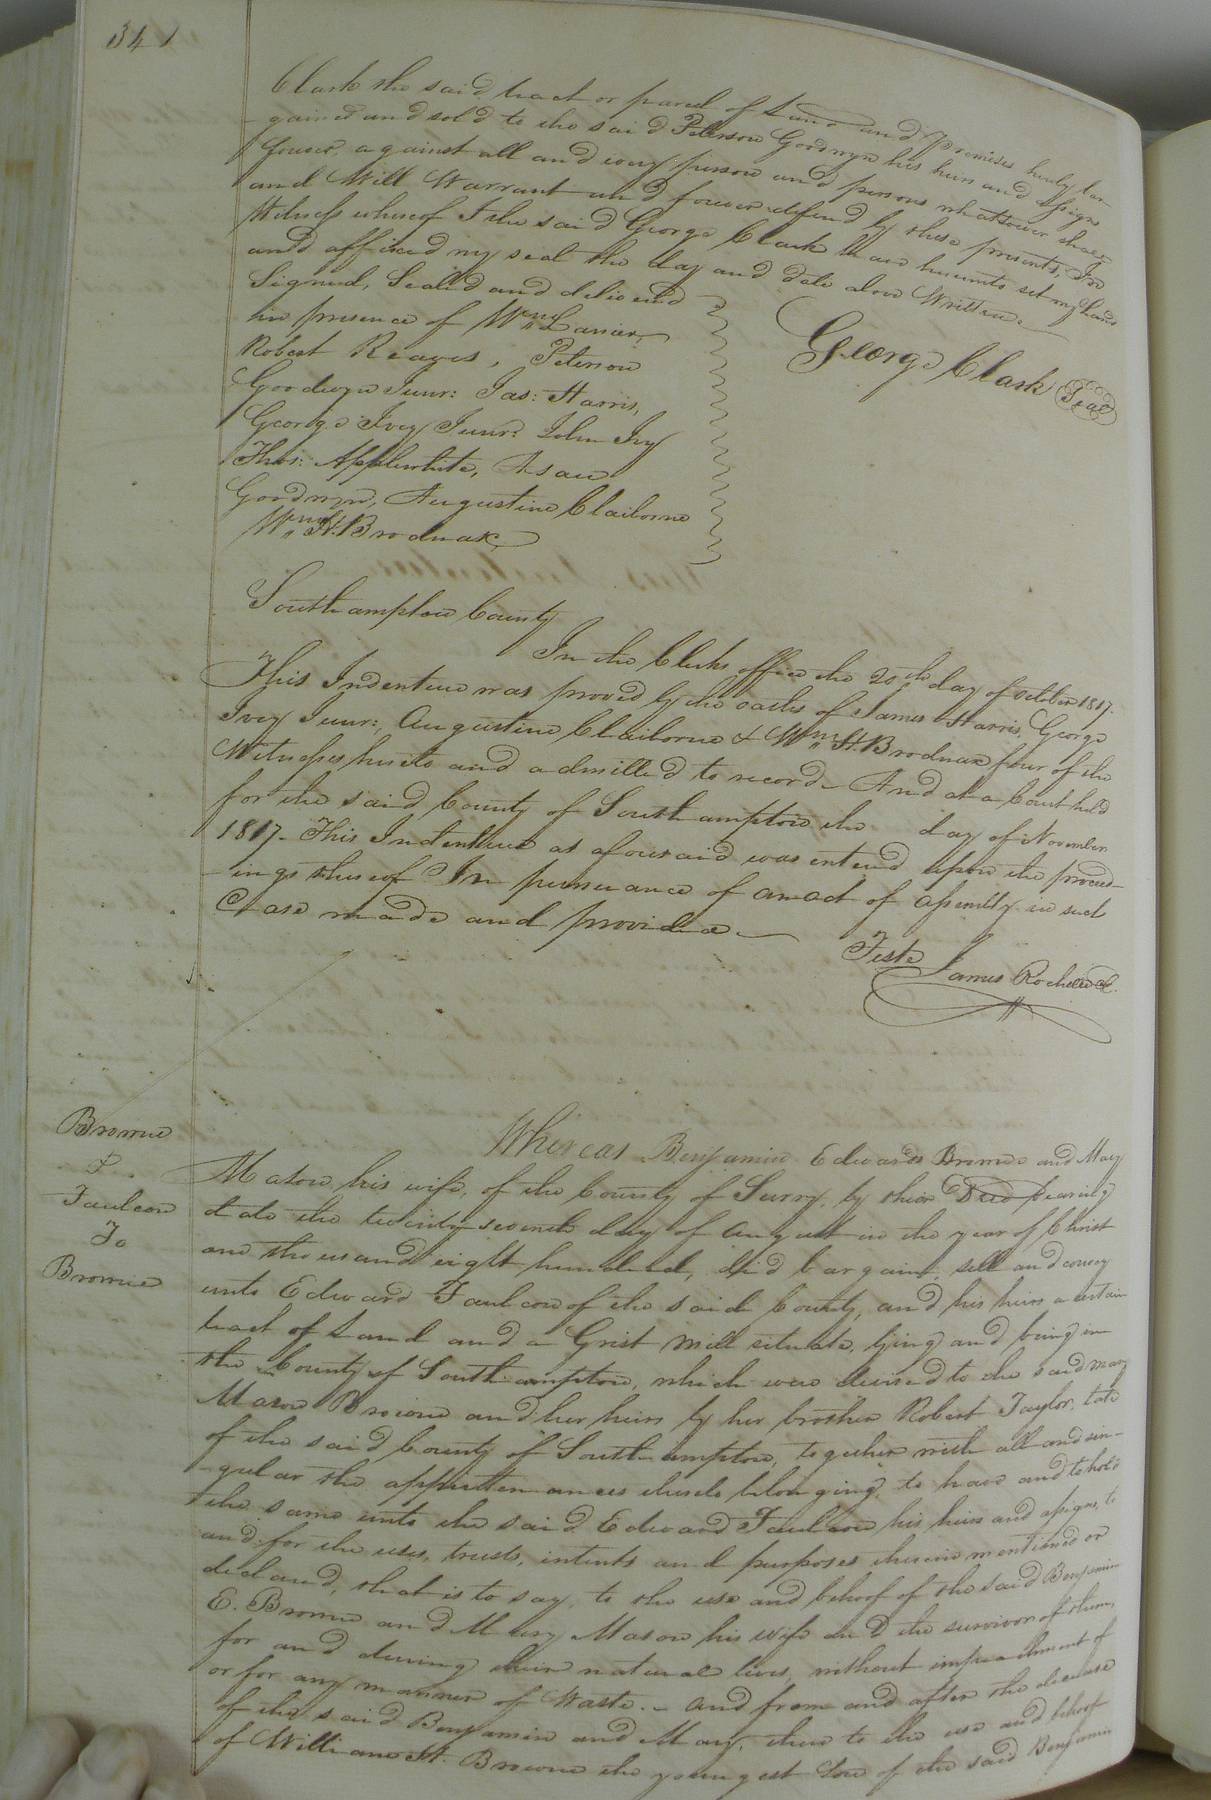 341
Clark the said tract or parcel of Land and Premises hereby bar-
gained and sold to the said Peterson Goodwyn his heirs and assigns
forever, against all and every person and persons whatsoever shall
and Will Warrant and forever defend by these presents, In
Witness whereof I the said George Clark have hereunto set my hand
and affixed my seal the day and date above Written.
Signed, Sealed and delivered
in presence of Wm Lanier,
Robert Reaves, Peterson
Goodwyn Junr: Jas: Harris,
George Ivey Junr: John Ivy
Thos: Applewhite, Asau
Goodwyn, Augustine Claiborne
Wm H. Brodnax,
George Clark Seal
Southampton County
In the Clerks office the 20th day of October 1817.
This Indenture was proved by the oaths of James Harris, George
Ivey Junr: Augustine Claiborne & Wm H. Brodnax four of the
Witnesses hereto and admitted to record And at a Court held
for the said County of Southampton the day of November
1817. This Indenture as aforesaid was entered upon the proceed-
ings thereof In pursuance of an act of assembly in such
Case made and provided
Teste James Rochelle
Browne
&
Faulcon
To
Browne
Whereas Benjamin Edwards Browne and Mary
Mason his wife, of the County of Surry, by their Deed bearing
date the twenty seventh day of August in the year of Christ
one thousand eight hundred, did bargain, sell and convey
unto Edward Faulcon of the said County, and his heirs a certain
tract of Land and a Grist mill situate, lying and being in
the County of Southampton, which were devised to the said Mary
Mason Browne and her heirs by her brother Robert Taylor, late
of the said County of Southampton, together with all and sin-
gular the appurtenances thereto belonging, to have and to hold
the same unto the said Edward Faulcon his heirs and assigns, to
and for the uses, trusts, intents and purposes therein mentioned or
declared, that is to say, to the use and behoof of the said Benjamin
E. Browne and Mary Mason his wife and the survivor of them,
for and during their natural lives, without impeachment of
or for any manner of Waste. And from and after the decease
of the said Benjamin and Mary, then to the use and behoof
of William H. Browne the youngest Son of the said Benjamin